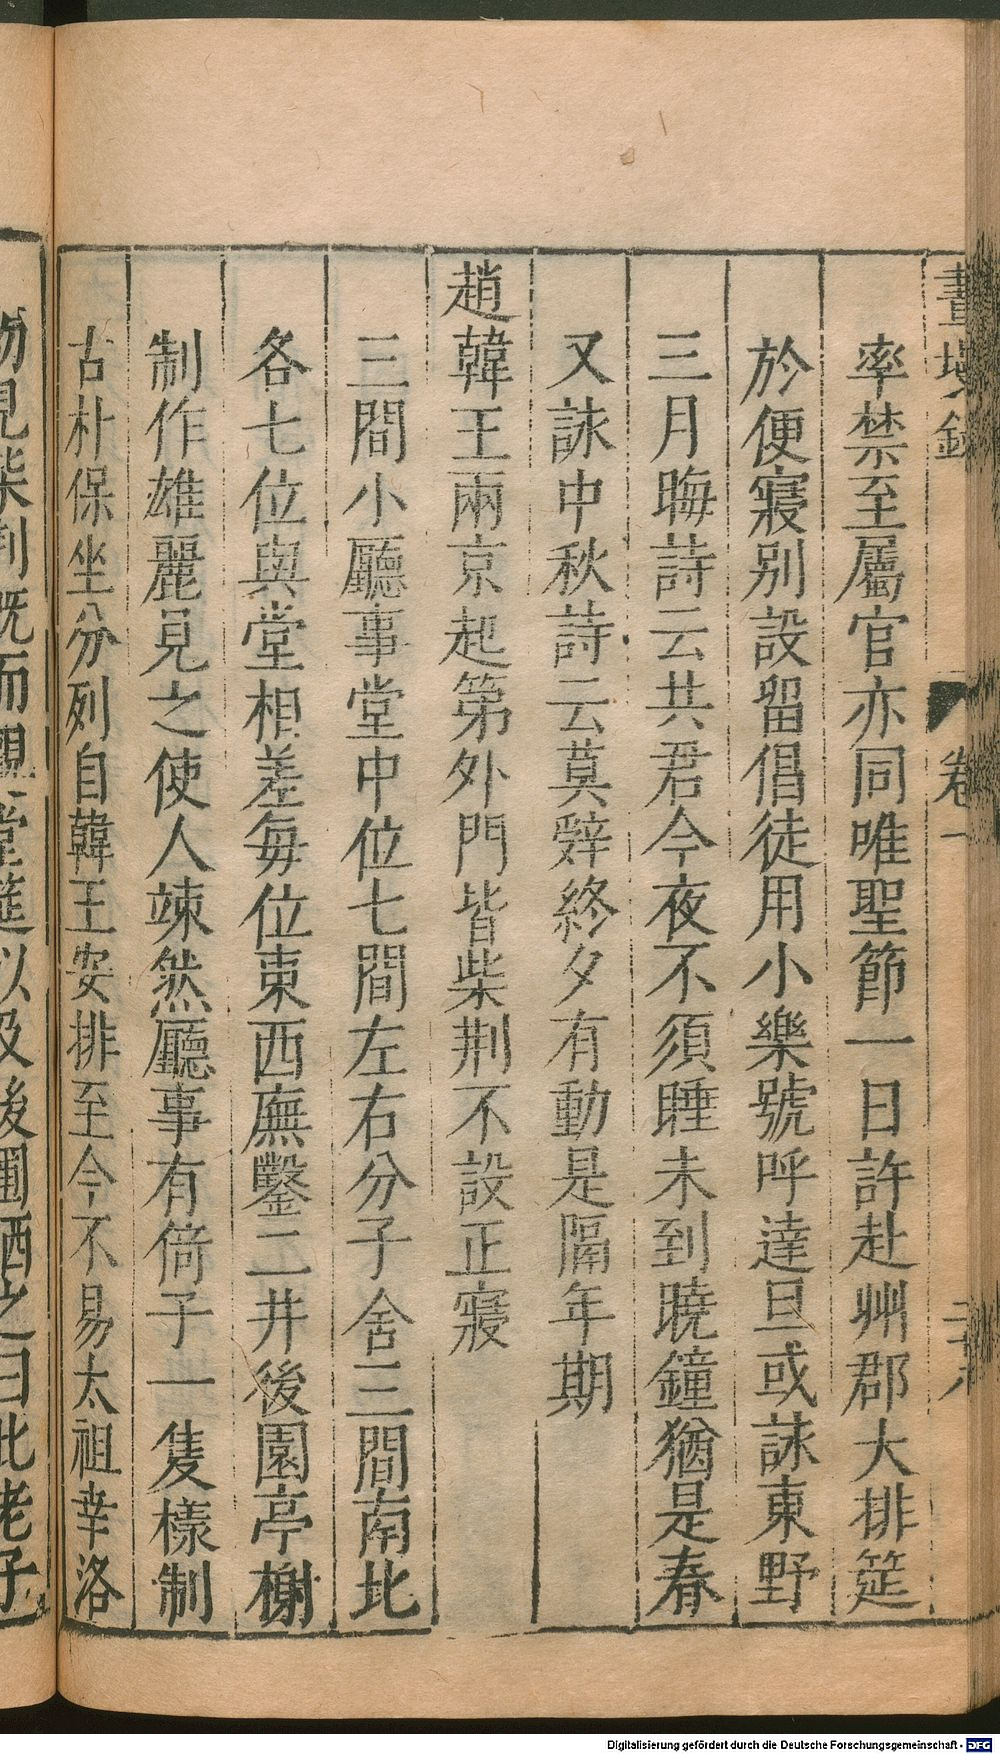 畫墁錄 卷一
率禁至屬官亦同唯聖節一日許赴州郡大排筵
於便寢别設留倡徒用小樂號呼達旦或詠東野
三月晦詩云共君今夜不須睡未到曉鐘猶是春
又詠中秋詩云莫辤終夕有動是隔年期
趙韓王兩京起第外門皆柴荆不設正寢
三間小廳事堂中位七間左右分子舍三間南北
各七位與堂相差每位東西廡鑿二井後園亭榭
制作雄麗見之使人竦然廳事有倚子一隻様制
古朴保坐分列自韓王安排至今不易太祖幸洛
初見柴荆既而觀堂筵以及後圃酒之曰此老子
Digitalisierung gefördert durch die Deutsche Forschungsgemeinschaft - DFG